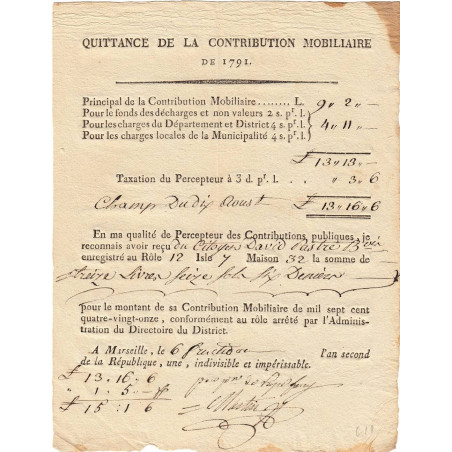 QUITTANCE DE LA CONTRIBUTION MOBILIAIRE
DE 1791.
Principal de la Contribution Mobiliaire........ L. 9 " 2 " —
Pour le fonds des décharges et non valeurs 2 s. pr. l.
Pour les charges du Département et District 4 s. pr. l. 4 " 11 " —
Pour les charges locales de la Municipalité 4 s. pr. l.
£ 13 " 13 " —
Taxation du Percepteur à 3 d. pr. l. . . " 3 " 6
Champ Du dix Aoust £ 13 " 16 " 6
En ma qualité de Percepteur des Contributions publiques, je
reconnais avoir reçu du Citoyen David
enregistré au Rôle 12 Isle 7 Maison 32 la somme de
treize Livres Seize sols six Deniers
pour le montant de sa Contribution Mobiliaire de mil sept cent
quatre-vingt-onze, conformément au rôle arrêté par l'Adminis-
tration du Directoire du District.
A Marseille, le 6 fructidor l'an second
de la République, une, indivisible et impérissable.
£ 13 . 16 . 6
" 1 . 5 —
£ 15 : 1 6